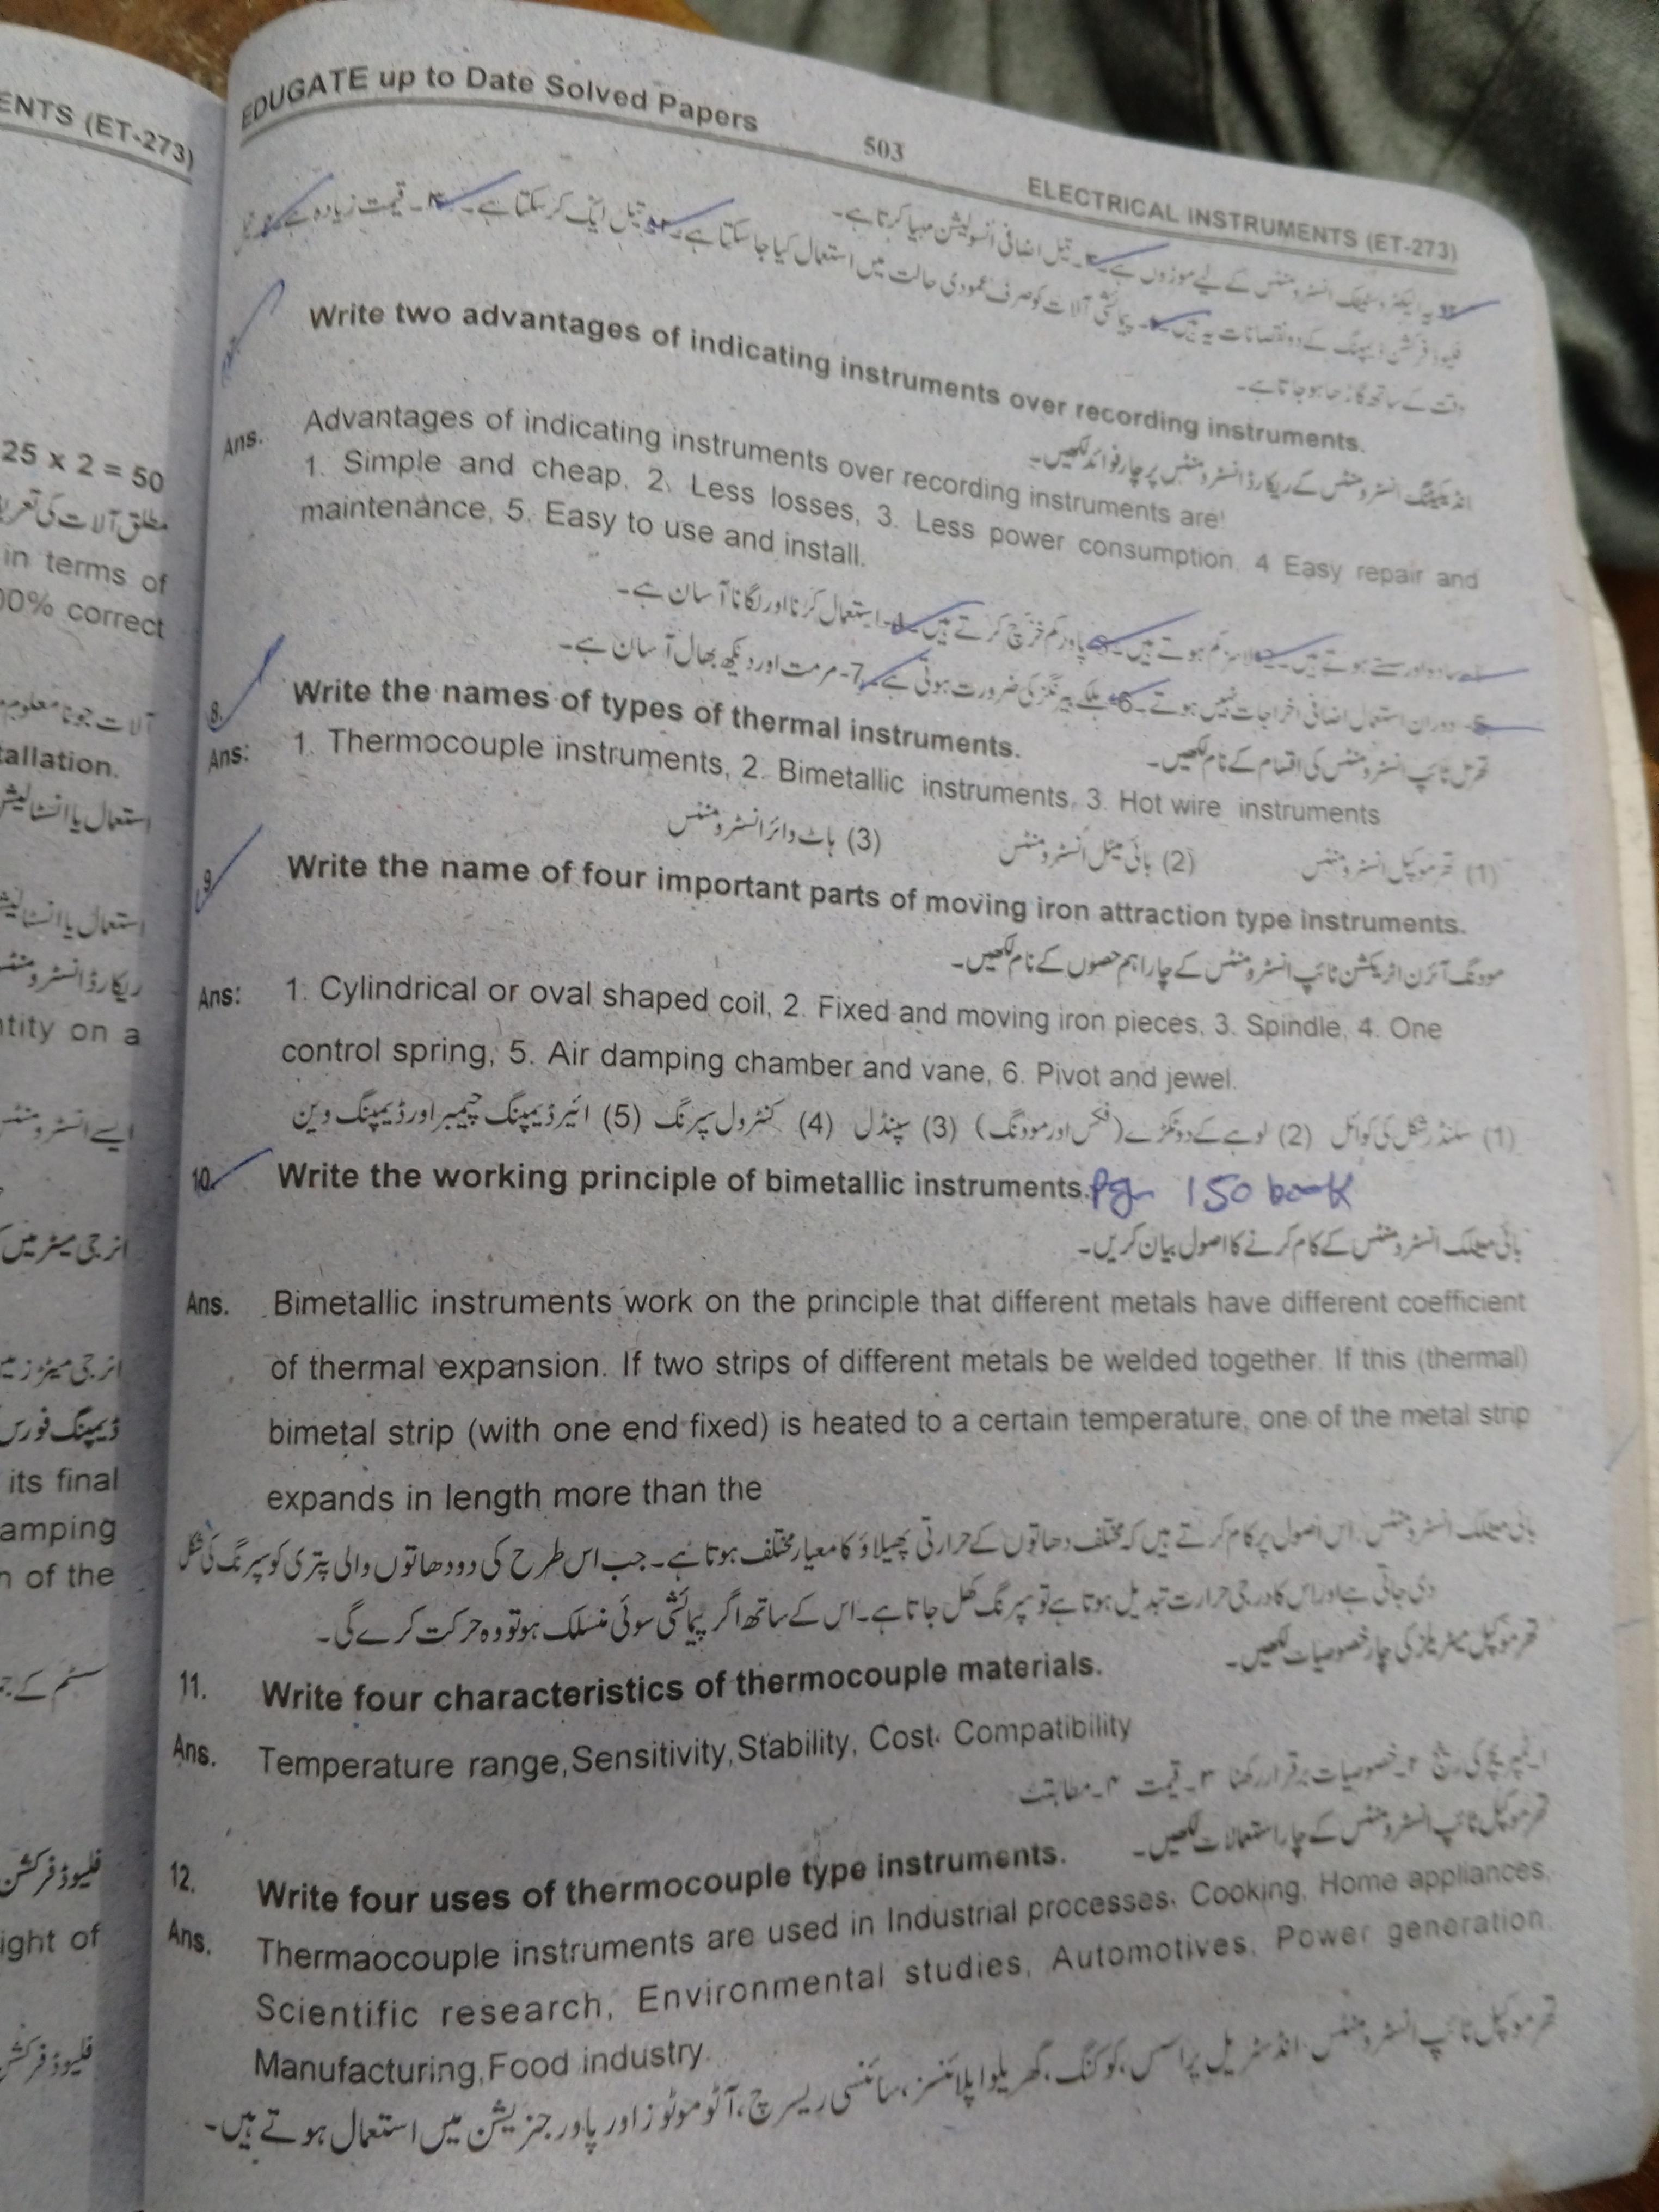 ENTS (ET-273)
25 x 2 = 50
مطلق آلات کی تعر
in terms of
00% correct
آلات جو نا معلوم
tallation.
استعمال یا انسٹالیش
استعمال یا انسٹالیش
ریکارڈ انسٹرومنٹ
ntity on a
ایسے انسٹرومنٹ
انرجی میٹر میں
انرجی میٹرز
ڈیمپنگ فورس
its final
amping
n of the
سسٹم کے
فلیوڈ فرکشن
ight of
فلیوڈ فرکشن
EDUGATE up to Date Solved Papers 503 ELECTRICAL INSTRUMENTS (ET-273)
یہ الیکٹروسٹیٹک انسٹرومنٹس کے لیے موزوں ہے۔ تیل اضافی انسولیشن مہیا کرتا ہے۔
فلیوڈ فرکشن ڈیمپنگ کے دو نقصانات یہ ہیں۔ پیمائشی آلات کو صرف عمودی حالت میں استعمال کیا جا سکتا ہے۔ تیل لیک کر سکتا ہے۔ قیمت زیادہ ہے
وقت کے ساتھ گاڑھا ہو جاتا ہے۔
Write two advantages of indicating instruments over recording instruments.
انڈیکیٹنگ انسٹرومنٹس کے ریکارڈ انسٹرومنٹس پر چار فوائد لکھیں۔
Ans. Advantages of indicating instruments over recording instruments are
1. Simple and cheap, 2. Less losses, 3. Less power consumption, 4 Easy repair and
maintenance, 5. Easy to use and install.
سادہ اور سستے ہوتے ہیں۔ لاسز کم ہوتے ہیں۔ پاور کم خرچ کرتے ہیں۔ استعمال کرنا اور لگانا آسان ہے۔
5- دوران استعمال اضافی اخراجات نہیں ہوتے۔ 6- بلکہ پیپر کی ضرورت ہوتی ہے۔ 7- مرمت اور دیکھ بھال آسان ہے۔
8. Write the names of types of thermal instruments.
تھرمل ٹائپ انسٹرومنٹس کی اقسام کے نام لکھیں۔
Ans: 1. Thermocouple instruments, 2. Bimetallic instruments, 3. Hot wire instruments
(1) تھرموکپل انسٹرومنٹس (2) بائی میٹل انسٹرومنٹس (3) ہاٹ وائر انسٹرومنٹس
9. Write the name of four important parts of moving iron attraction type instruments.
موونگ آئرن اٹریکشن ٹائپ انسٹرومنٹس کے چار اہم حصوں کے نام لکھیں۔
Ans: 1. Cylindrical or oval shaped coil, 2. Fixed and moving iron pieces, 3. Spindle, 4. One
control spring, 5. Air damping chamber and vane, 6. Pivot and jewel.
(1) سلنڈر شکل کی کوائل (2) لوہے کے دو ٹکڑے (فکس اور موونگ) (3) سپنڈل (4) کنٹرول سپرنگ (5) ائیر ڈیمپنگ چیمبر اور ڈیمپنگ وین
10. Write the working principle of bimetallic instruments. Pg 150 book
بائی میٹلک انسٹرومنٹس کے کام کرنے کا اصول بیان کریں۔
Ans. Bimetallic instruments work on the principle that different metals have different coefficient
of thermal expansion. If two strips of different metals be welded together. If this (thermal)
bimetal strip (with one end fixed) is heated to a certain temperature, one of the metal strip
expands in length more than the
بائی میٹلک انسٹرومنٹس اس اصول پر کام کرتے ہیں کہ مختلف دھاتوں کے حرارتی پھیلاؤ کا معیار مختلف ہوتا ہے۔ جب اس طرح کی دو دھاتوں والی پتری کو سپرنگ کی شکل
دی جاتی ہے اور اس کا درجی حرارت تبدیل ہوتا ہے تو سپرنگ کھل جاتا ہے۔ اس کے ساتھ اگر پیمائشی سوئی منسلک ہو تو وہ حرکت کرے گی۔
11. Write four characteristics of thermocouple materials.
تھرموکپل میٹریلز کی چار خصوصیات لکھیں۔
Ans. Temperature range,Sensitivity,Stability, Cost. Compatibility
۱۔ ٹمپریچر کی رینج ۲۔ خصوصیات برقرار رکھنا ۳۔ قیمت ۴۔ مطابقت
12. Write four uses of thermocouple type instruments.
تھرموکپل ٹائپ انسٹرومنٹس کے چار استعمالات لکھیں۔
Ans. Thermaocouple instruments are used in Industrial processes. Cooking, Home appliances,
Scientific research, Environmental studies, Automotives, Power generation,
Manufacturing,Food industry.
تھرموکپل ٹائپ انسٹرومنٹس، انڈسٹریل پراسس، کوکنگ، گھریلو اپلائنسز، سائنسی ریسرچ، آٹو موٹوز اور پاور جنریشن میں استعمال ہوتے ہیں۔